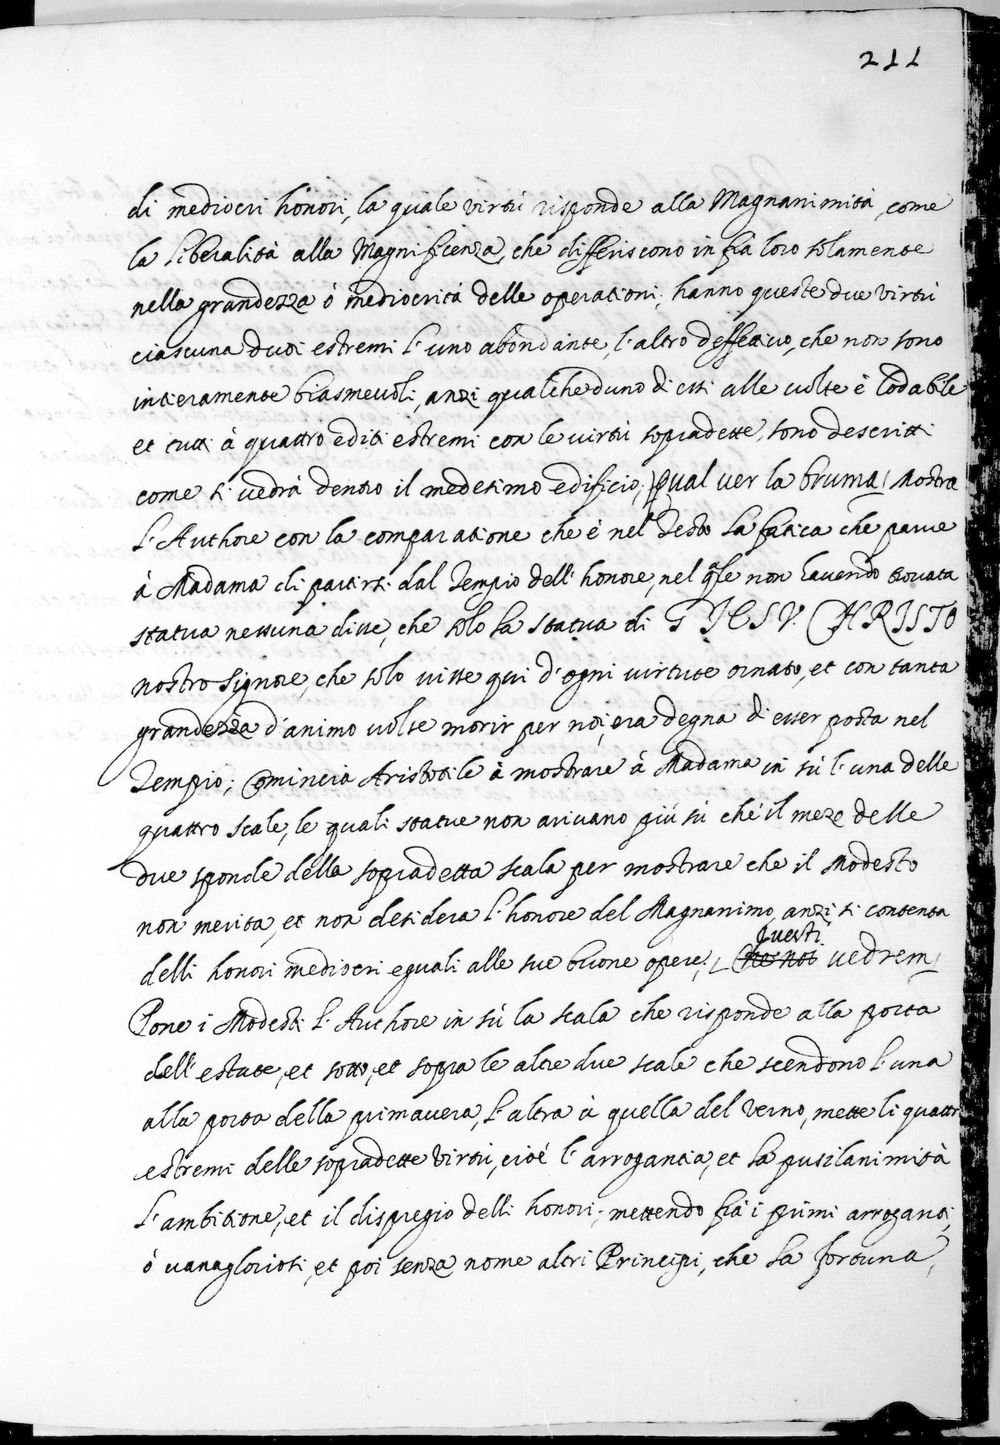 211
di mediocri honori, la quale virtù risponde alla Magnanimità, come
la liberalità alla Magnificenza, che differiscono in frà loro solamente
nella grandezza ò mediocrità delle operationi; hanno queste due virtù
ciascuna duoi estremi l'uno abondante, l'altro deffettiuo, che non sono
intieramente biasmeuoli, anzi qualcheduno di essi alle uolte è lodabile
et tutti à quattro editi estremi con le uirtù sopradette, sono descritti
come si uedrà dentro il medesimo edificio; Qual uer la bruma/ Mostra
l'Authore con la comparatione che è nel Testo la fatica che parue
à Madama di partirsi dal Tempio dell'honore, nel qle non hauendo trouata
statua nessuna disse, che solo la statua di GIESV. CHRISTO
nostro Signore, che solo uisse qui d'ogni uirtute ornato, et con tanta
grandezza d'animo uolse morir per noi, era degna di esser posta nel
Tempio; Comincia Aristotile à mostrare à Madama in sù l'una delle
quattro scale, le quali statue non ariuano più sù che il meze delle
due sponde della sopradetta scala per mostrare che il Modesto
non merita, et non desidera l'honore del Magnanimo, anzi si contenta
Questi
delli honori mediocri eguali alle sue buone opere; / Che noi uedrem/
Pone i Modesti l'Authore in sù la scala che risponde alla porta
dell'estate, et sotto, et sopra le altre due scale che scendono l'una
alla porta della primauera, l'altra à quella del Verno, mette li quattr
estremi delle sopradette Virtù, cioè l'arrogantia, et la pusilanimità
l'ambitione, et il dispregio delli honori; mettendo frà i primi arroganti,
ò uanagloriosi, et poi senza nome altri Principi, che la fortuna,